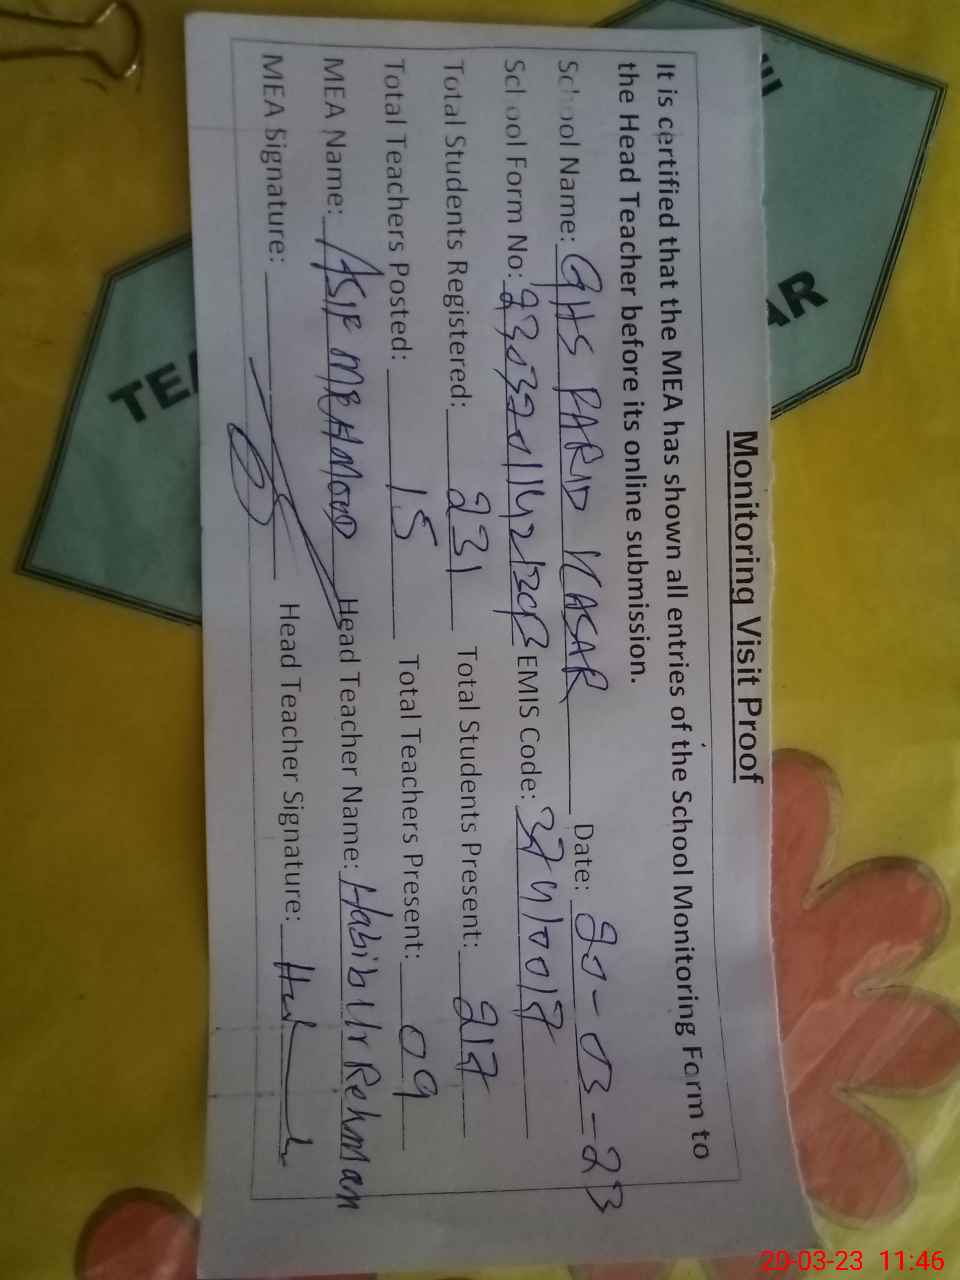 Monitoring Visit Proof
It is certified that the MEA has shown all entries of the School Monitoring Form to
the Head Teacher before its online submission.
School Name: GHS FARID KASAR Date: 20-03-23
School Form No: EMIS Code: 37410017
Total Students Registered: 231 Total Students Present: 217
Total Teachers Posted: 15 Total Teachers Present: 09
MEA Name: ASIF MEHMOOD Head Teacher Name: Habib Ur Rehman
MEA Signature: Head Teacher Signature:
TEA
AR
20-03-23 11:46